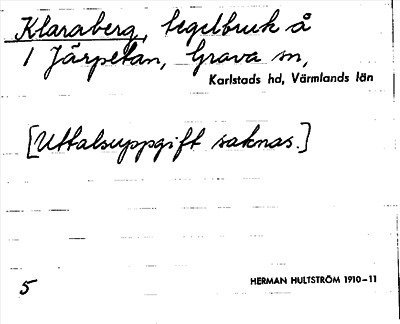 Klaraberg, tegelbruk å
1 Järpetan, Grava sn,
Karlstads hd, Värmlands län
[Uttalsuppgift saknas.]
5
HERMAN HULTSTRÖM 1910-11